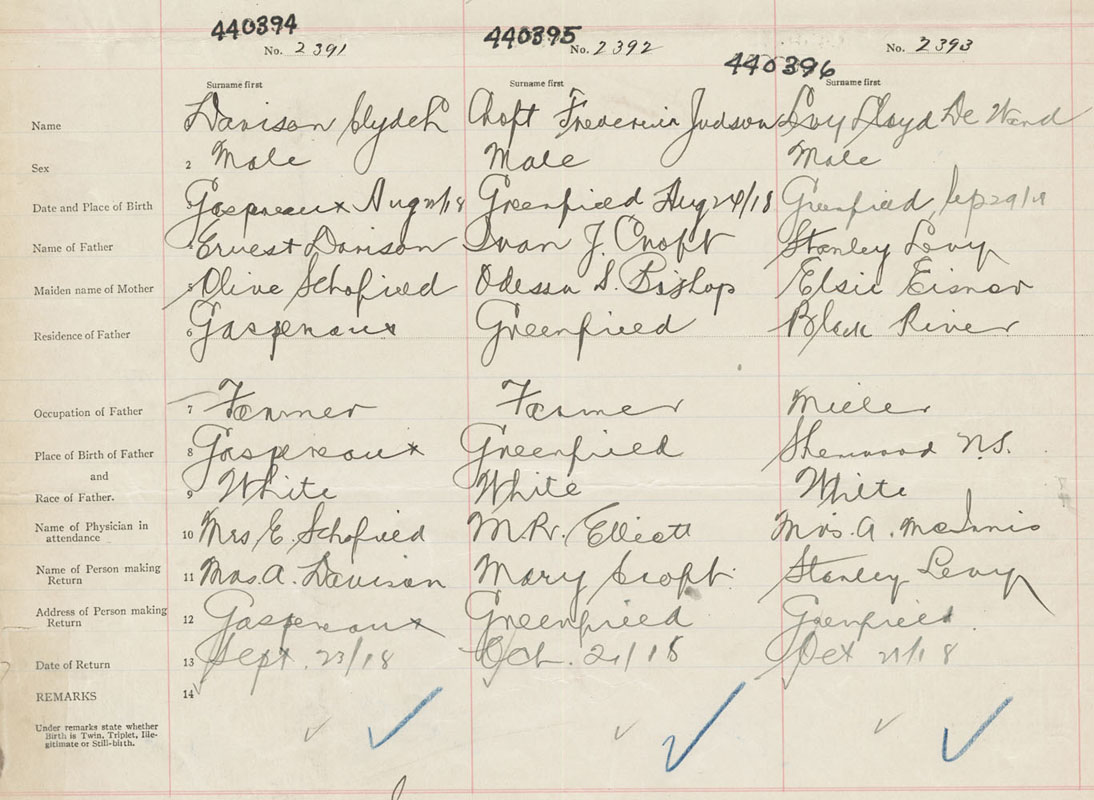 440394 440395 440396
No. 2391 No. 2392 No. 2393
Surname first Surname first Surname first
Name Davison Clyde H Croft Frederick Judson Levy Lloyd De
Sex 2 Male Male Male
Date and Place of Birth Gaspereaux Aug /18 Greenfield Aug 24/18 Greenfield, Sep 29/18
Name of Father 4 Ernest Davison Ivan J. Croft Stanley Levy
Maiden name of Mother 5 Olive Schofield Odessa S. Bishop Elsie Eisnor
Residence of Father 6 Gaspereaux Greenfield Black River
Occupation of Father 7 Farmer Farmer Miller
Place of Birth of Father 8 Gaspereaux Greenfield Sherwood N.S.
and
Race of Father. 9 White White White
Name of Physician in attendance 10 Mrs E. Schofield M.R. Elliott Mrs. A. McInnis
Name of Person making Return 11 Mrs. A. Davison Mary Croft. Stanley Levy
Address of Person making Return 12 Gaspereaux Greenfield Greenfield.
Date of Return 13 Sept. 23/18 Oct. 21/18 Oct 21/18
REMARKS 14
Under remarks state whether
Birth is Twin, Triplet, Ille-
gitimate or Still-birth.